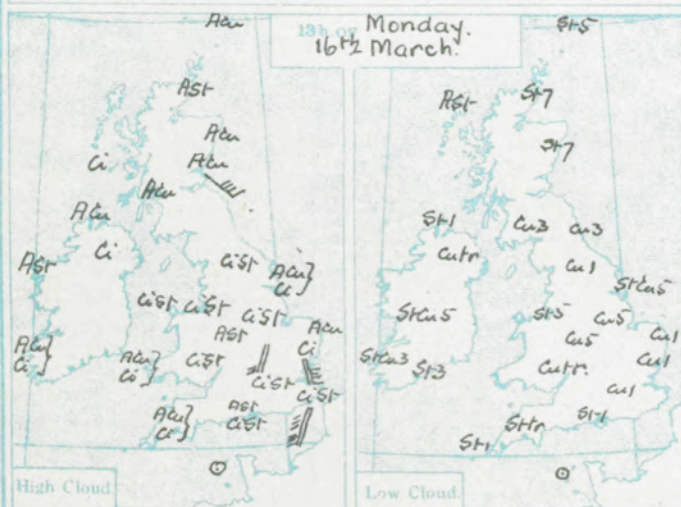 13h on Monday.
16th March.
ACu
ASt
ACu
Ci
ACu
ACu
ACu
Ci
ASt
CiSt
ACu}
Ci}
CiSt
CiSt
CiSt
ACu
ASt
ACu}
Ci}
ACu}
Ci}
CiSt
Ci
CiSt
CiSt
ACu}
Ci}
ASt
CiSt
High Cloud.
St5
ASt
St7
St7
St1
Cu3
Cu3
Cutr
Cu1
StCu5
StCu5
St5
Cu5
Cu5
Cu1
StCu3
St3
Cutr.
Cu1
Cu1
Sttr
St1
St1
Low Cloud.